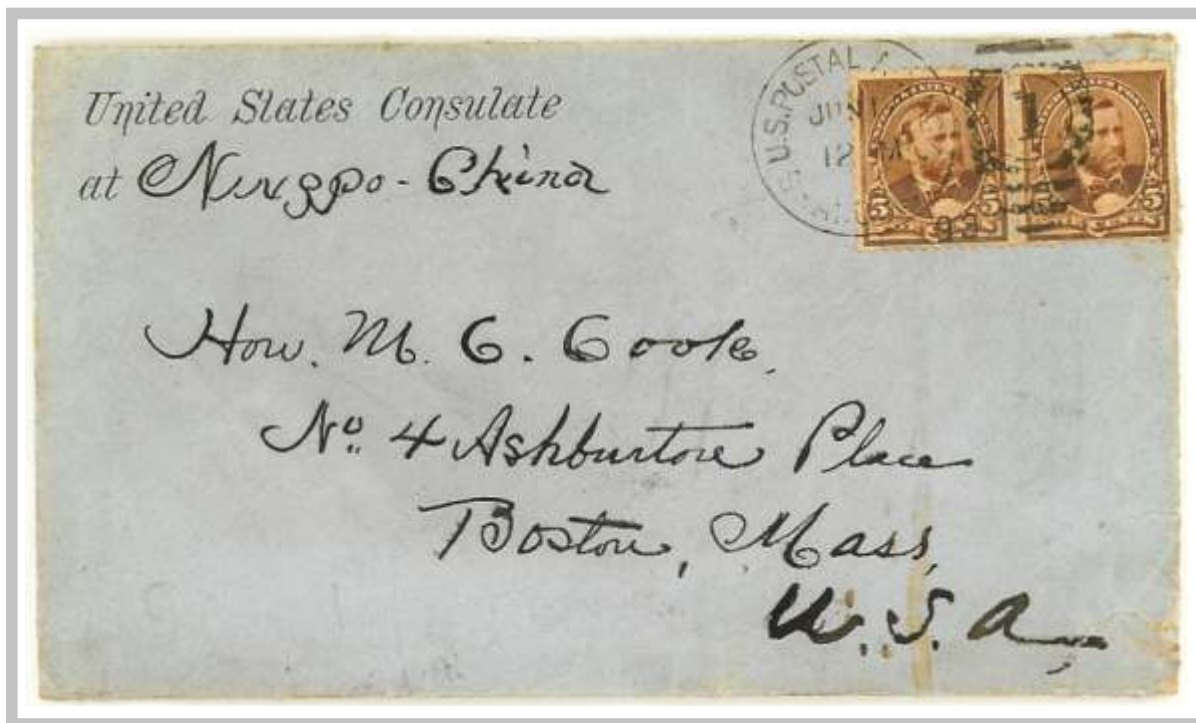 United States Consulate
at Ningpo - China
U.S. POSTAL
JUN
12 M
93
5 5
5 5
Hon. M. C. Cook,
No. 4 Ashburton Place
Boston, Mass,
U. S. A.